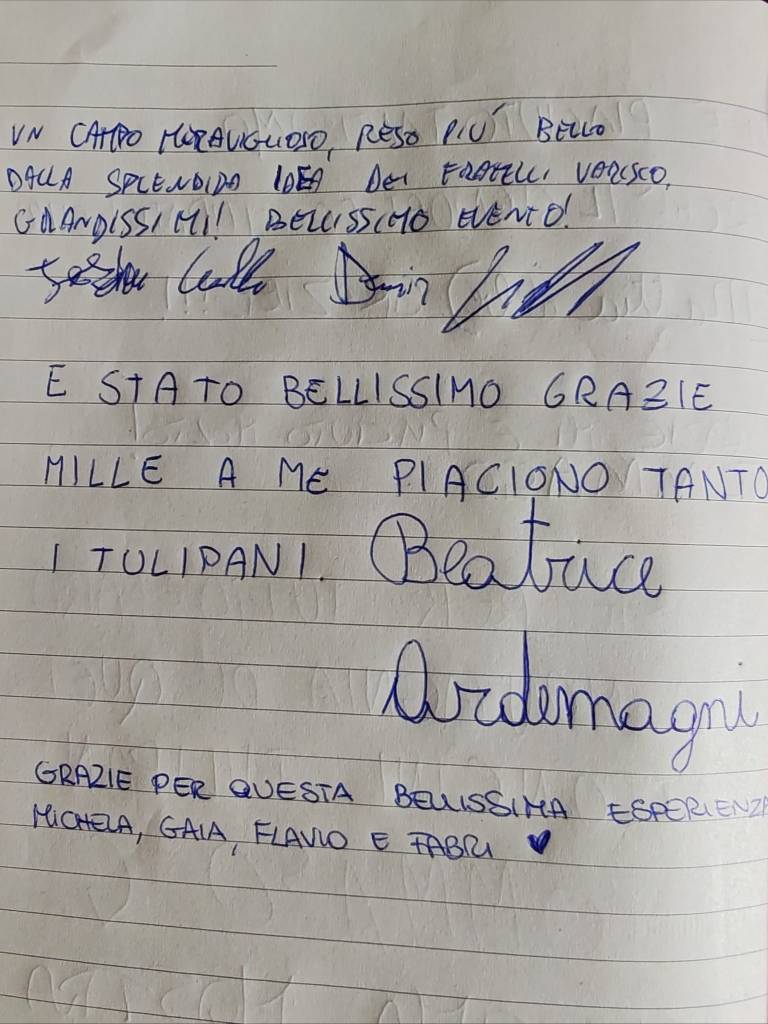 UN CAMPO MERAVIGLIOSO, RESO PIÚ BELLO
DALLA SPLENDIDA IDEA DEI FRATELLI VARISCO,
GRANDISSIMI! BELLISSIMO EVENTO!
E STATO BELLISSIMO GRAZIE
MILLE A ME PIACIONO TANTO
I TULIPANI. Beatrice
Ardemagni
GRAZIE PER QUESTA BELLISSIMA ESPERIENZA
MICHELA, GAIA, FLAVIO E FABRI ♥